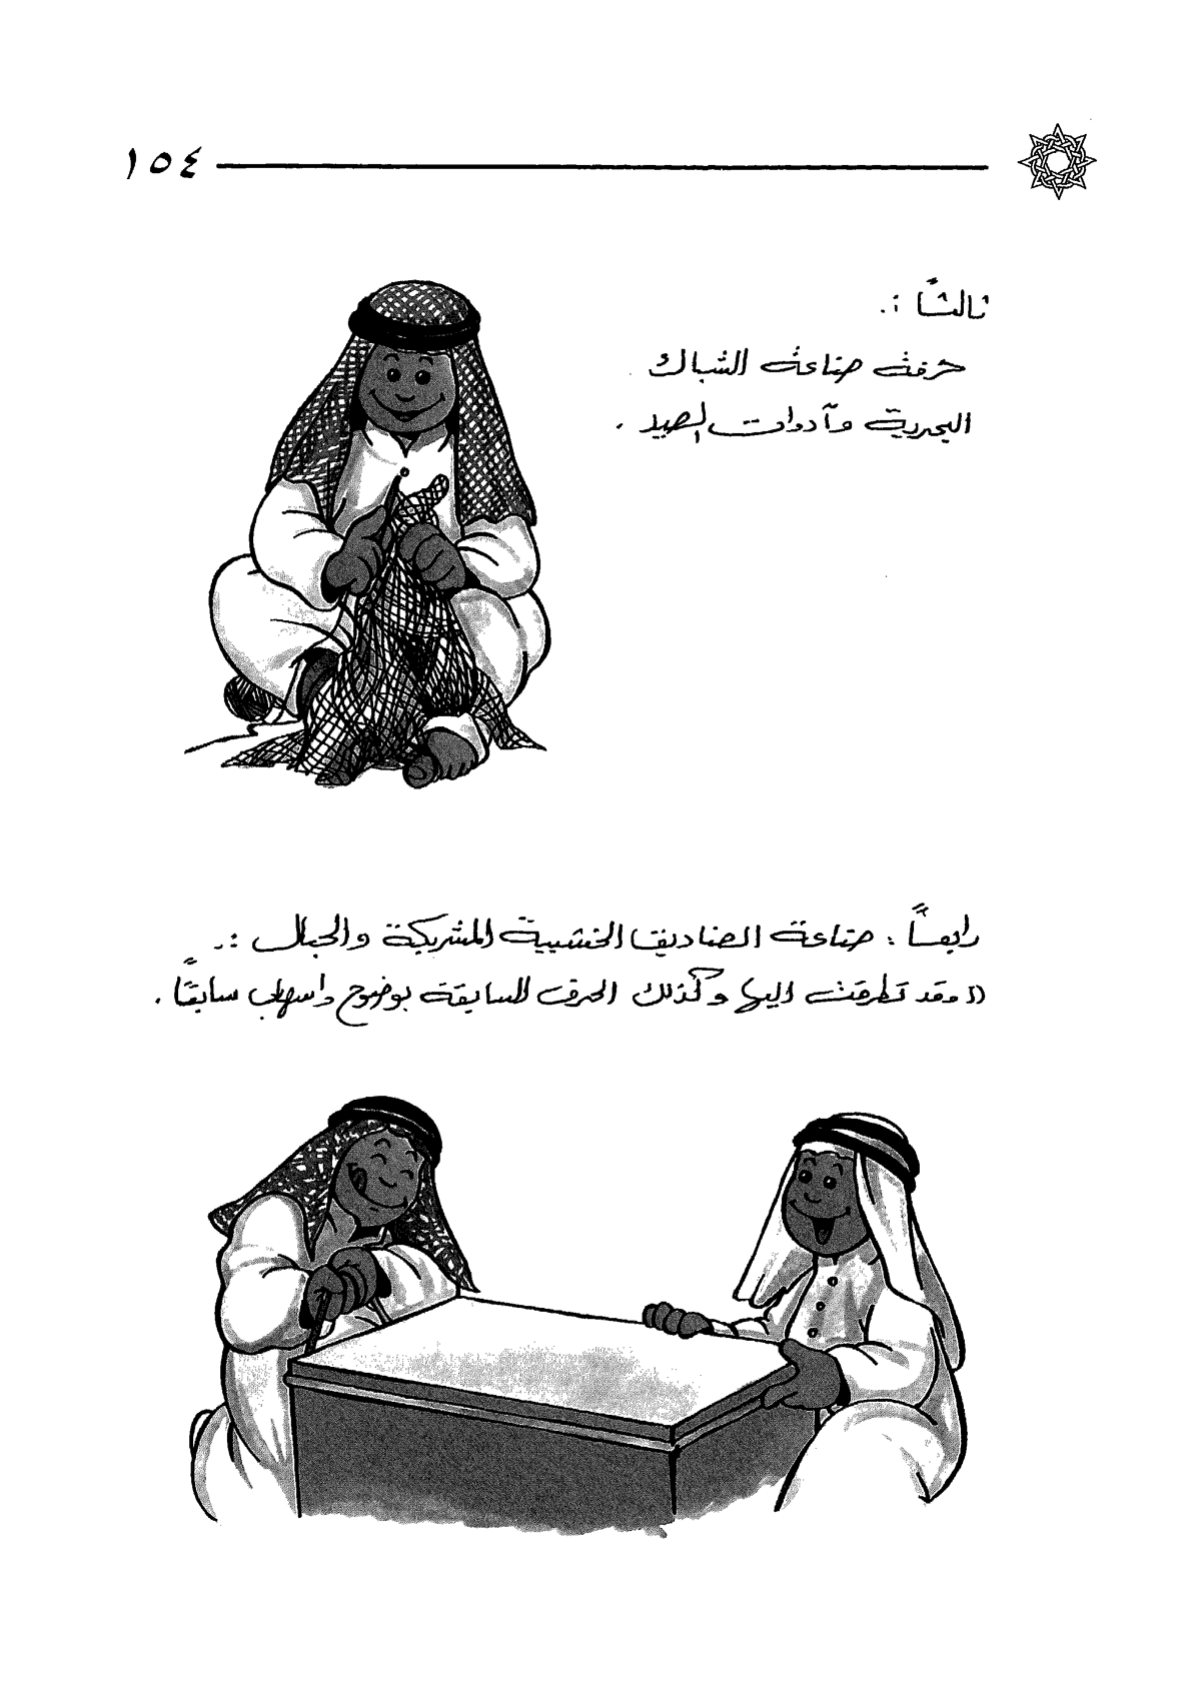 ١٥٤
ثالثاً :.
حرفة صناعة الشباك
البحرية وآدوات الصيد .
رابعاً : صناعة الصناديق الخشبية المشربكة والحبال :.
(( وقد تطرقت اليها وكذلك الحرف السابقة بوضوح واسهاب سابقاً .